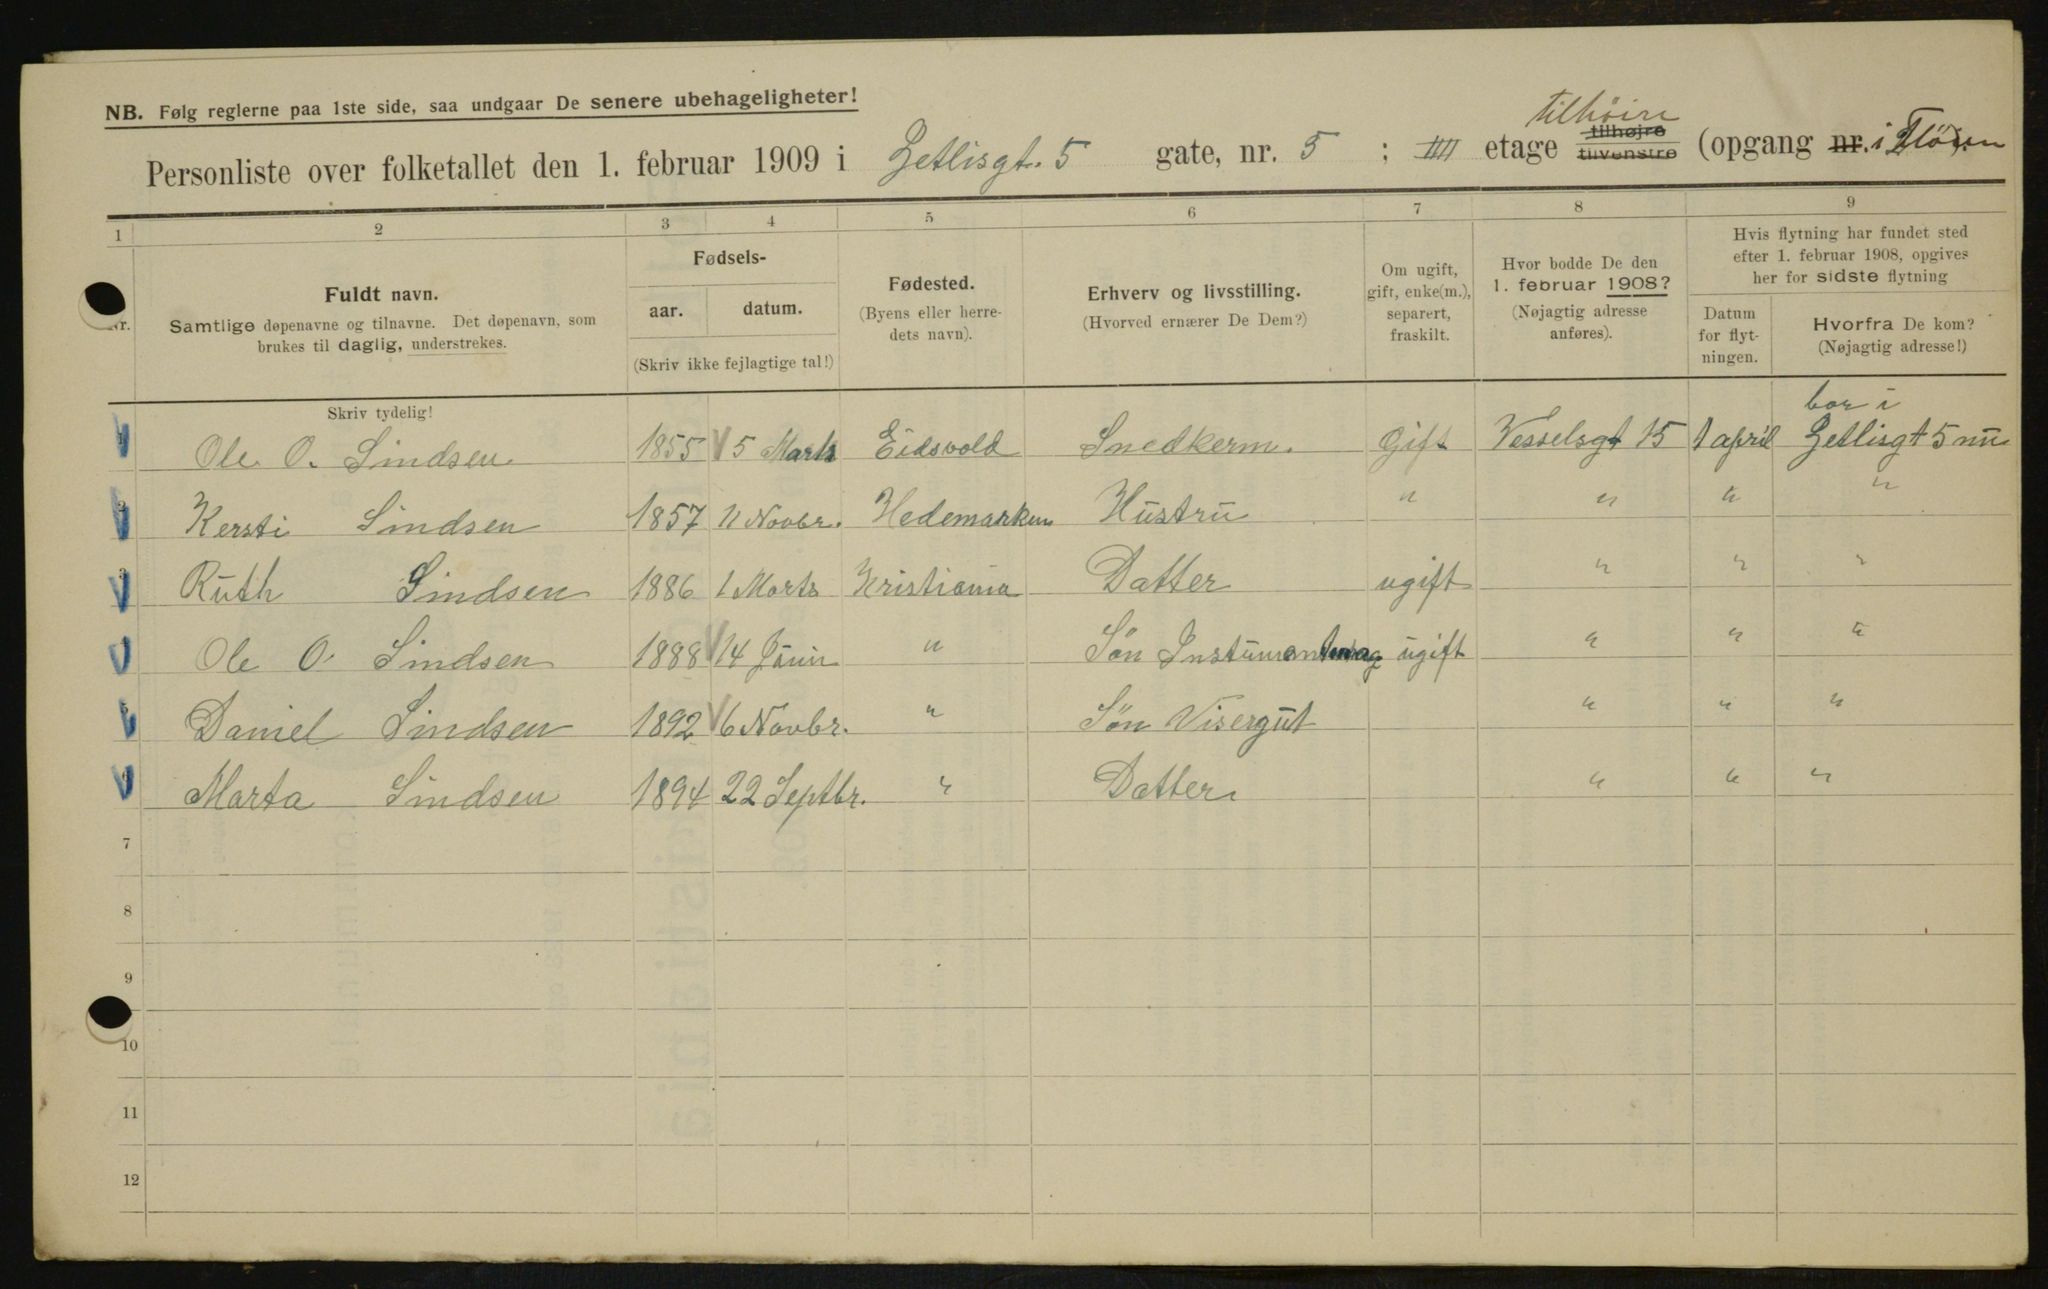 NB. Følg reglerne paa 1ste side, saa undgaar De senere ubehageligheter!
tilhöire
Personliste over folketallet den 1. februar 1909 i Zetlisgt. 5 gate, nr. 5 ; IIII etage tilhøjre tilvenstre (opgang nr. i Flöien
1 2 3 4 5 6 7 8 9
Nr.
Fuldt navn.
Samtlige døpenavne og tilnavne. Det døpenavn, som
brukes til daglig, understrekes.
Skriv tydelig!
Fødsels-
aar. datum.
(Skriv ikke fejlagtige tal!)
Fødested.
(Byens eller herre-
dets navn).
Erhverv og livsstilling.
(Hvorved ernærer De Dem?)
Om ugift,
gift, enke(m.),
separert,
fraskilt.
Hvor bodde De den
1. februar 1908?
(Nøjagtig adresse
anføres).
Hvis flytning har fundet sted
efter 1. februar 1908, opgives
her for sidste flytning
Datum
for flyt-
ningen.
Hvorfra De kom?
(Nøjagtig adresse!)
bor i
1 Ole O. Lindsen 1855 5 Marts Eidsvold Snedkerm. Gift Vesselsgt 15 1 april Zetlisgt 5 nu
2 Kersti Lindsen 1857 11 Novbr. Hedemarken Hustru " " " "
3 Ruth Lindsen 1886 1 Marts Kristiania Datter ugift " " "
Ole O. Lindsen 1888 14 Juni " Søn ugift " " "
5 Daniel Lindsen 1892 6 Novbr. " Søn Visergut " " "
6 Marta Lindsen 1894 22 Septbr. " Datter. " " "
7
8
9
10
11
12